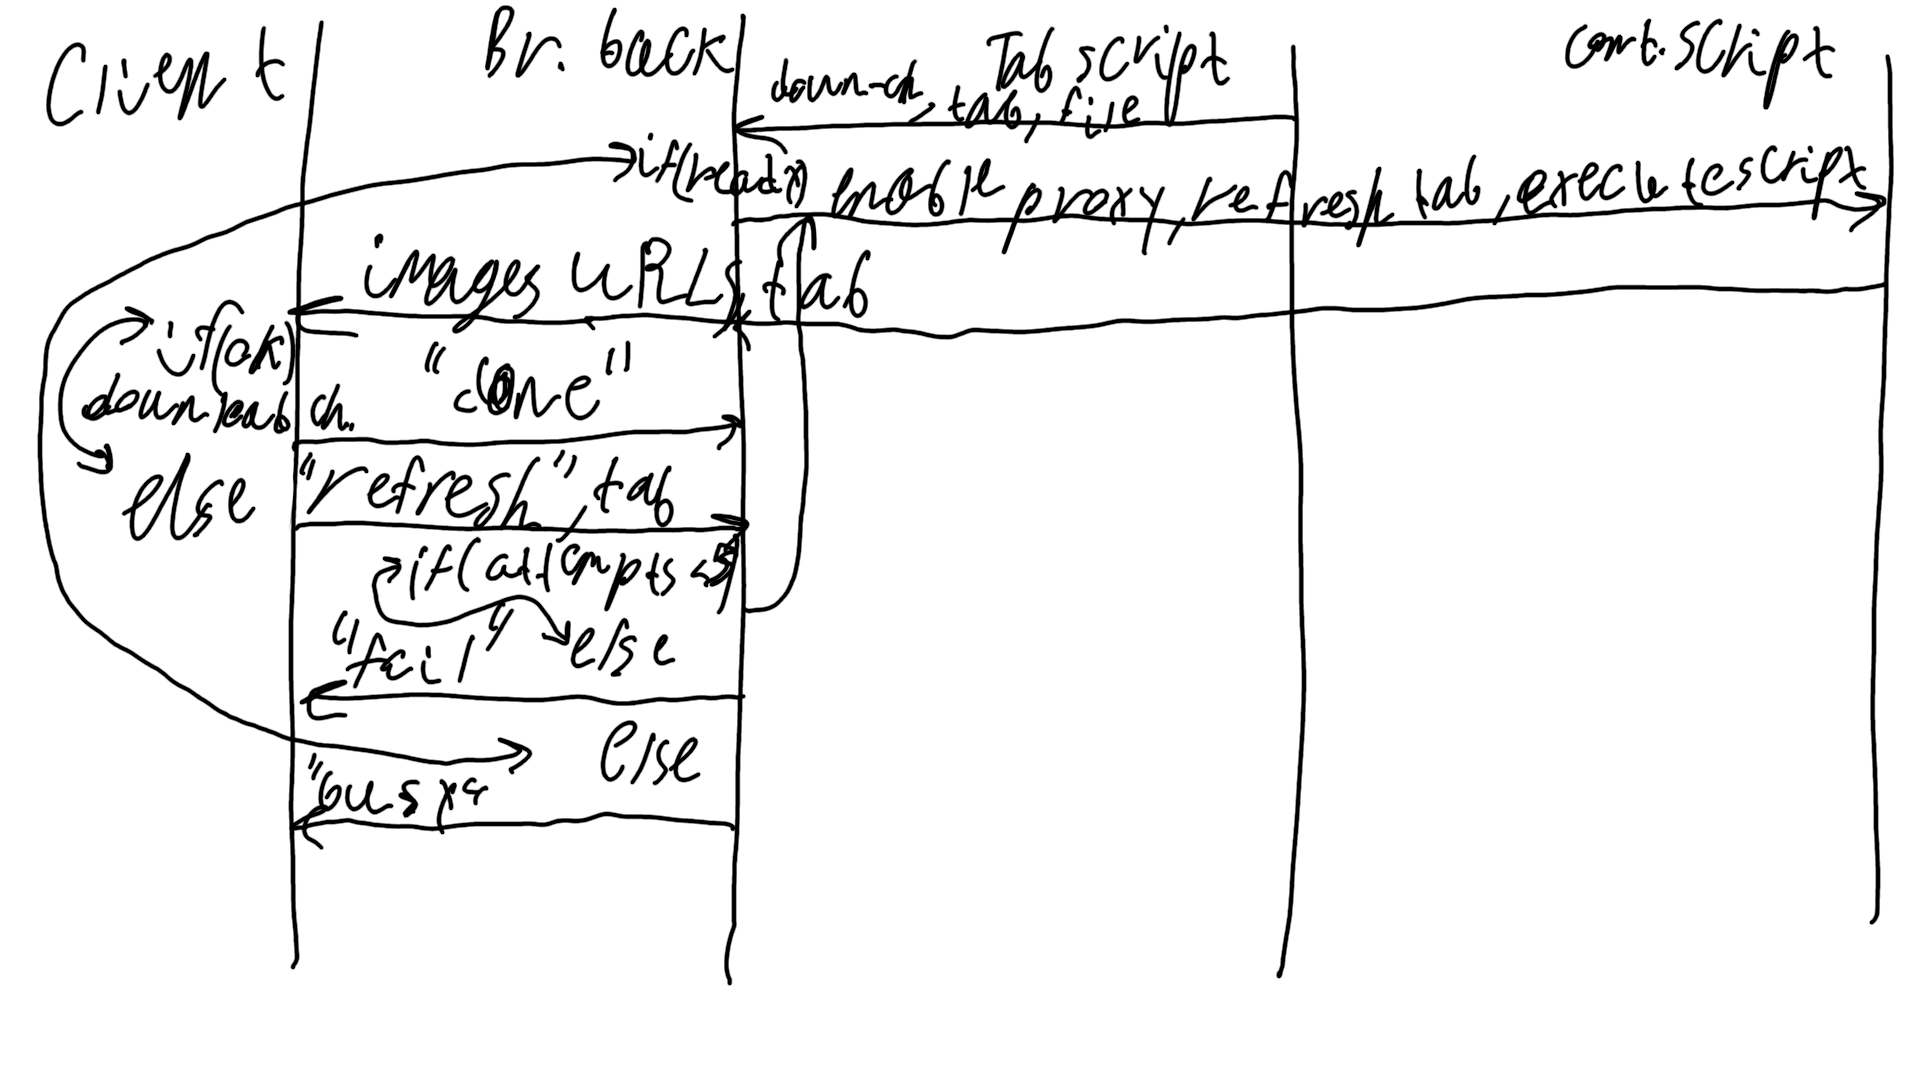 Client
Br. back
Tab script
cont. script
down-ch, tab, file
if(ready)
enable proxy, refresh tab, execute script
images URLs, tab
if(ok)
"done"
download ch.
else
"refresh", tab
if(attempts <5)
"fail"
else
else
"busy"